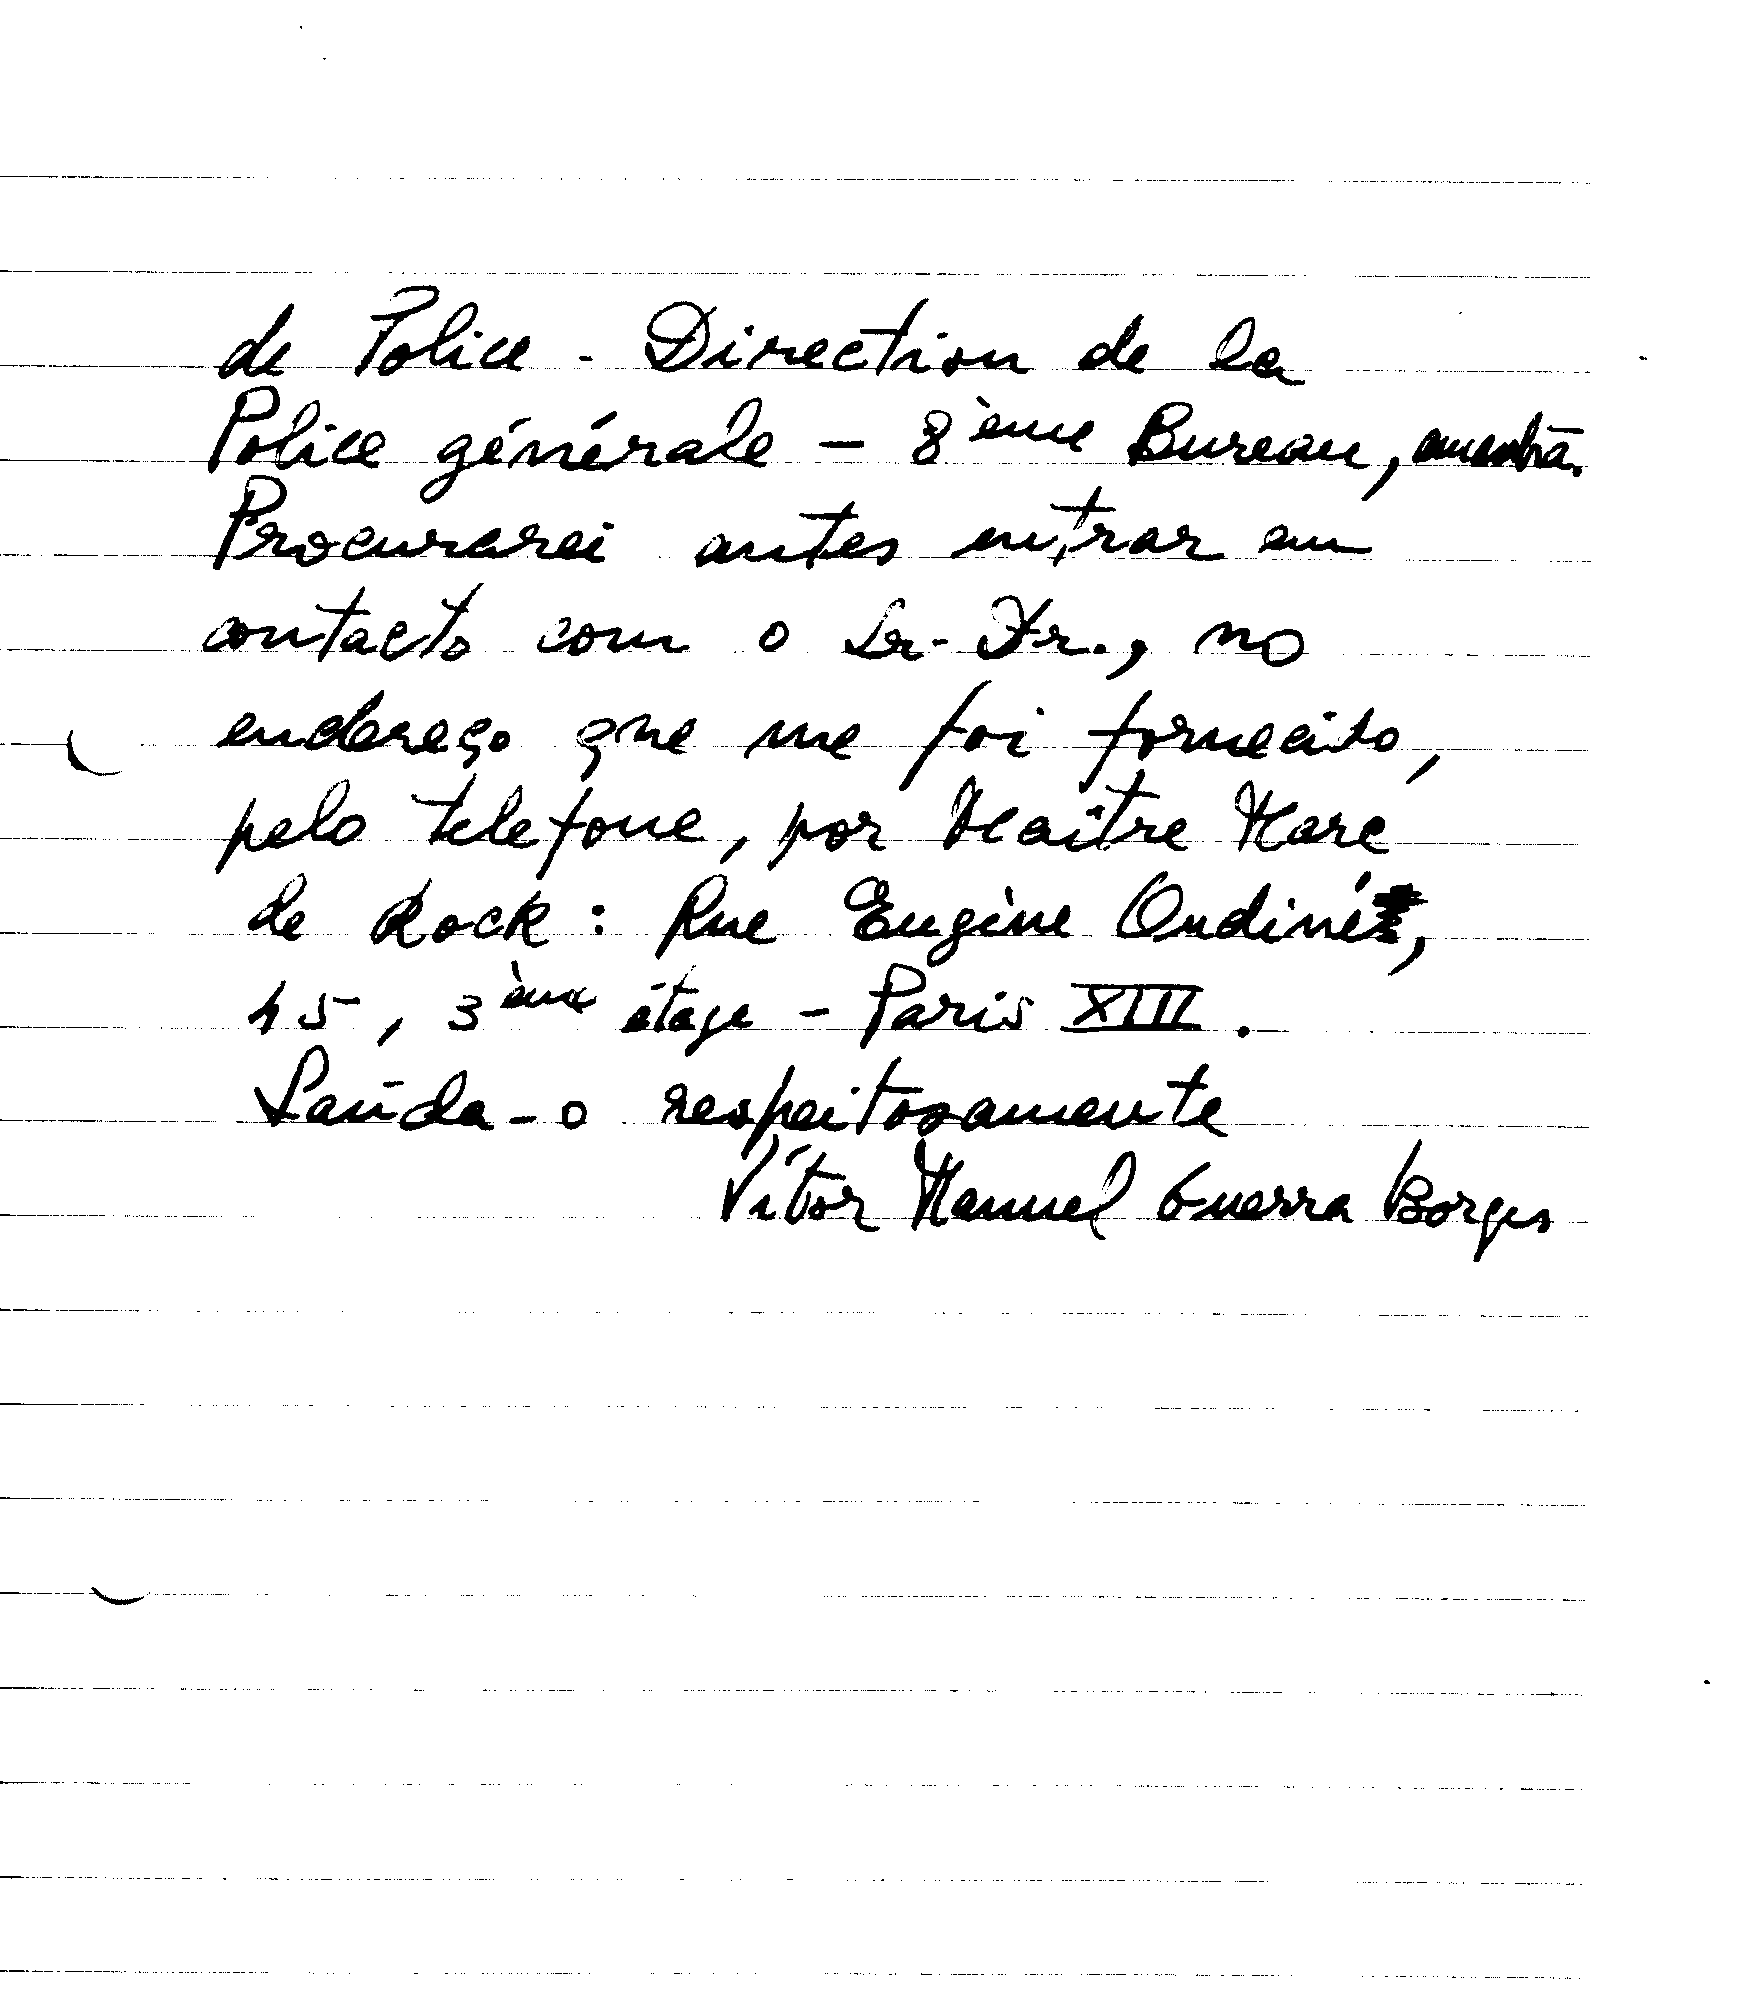 de Police - Direction de la
Police générale - 8ème Bureau, amanhã.
Procurarei antes entrar em
contacto com o Sr. Dr., no
endereço que me foi fornecido,
pelo telefone, por Maître Marc
de Rock: Rue Eugène Oudiné,
45, 3ème étage - Paris XIII.
Saúda-o respeitosamente
Vítor Manuel Guerra Borges